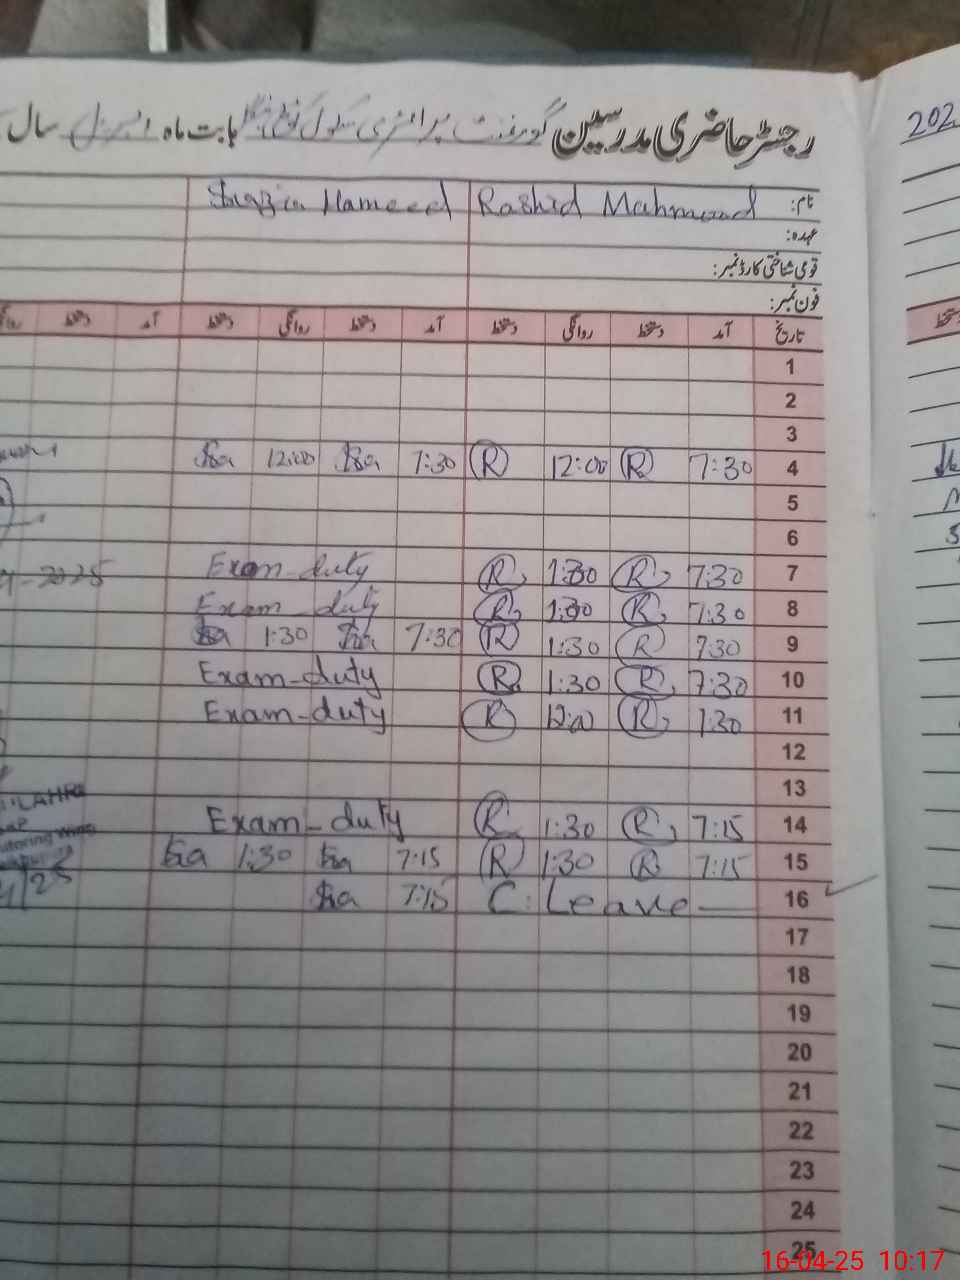 رجسٹر حاضری مدرسین گورنمنٹ پرائمری سکول بابت ماہ اپریل سال
202
نام: Rashid Mahmood Hameed
عہدہ:
قومی شناختی کارڈ نمبر:
فون نمبر:
تاریخ آمد دستخط روانگی دستخط آمد دستخط روانگی دستخط آمد دستخط
1
2
3
4 7:30 R 12:00 R 7:30 12:00
5
6
7 7:30 R 1:30 R Exam-duty
8 7:30 R 1:30 R Exam duty
9 7:30 R 1:30 R 7:30 1:30
10 7:30 R 1:30 R Exam-duty
11 7:30 R 12:00 R Exam-duty
12
13
14 7:15 R 1:30 R Exam-duty
15 7:15 R 1:30 R 7:15 1:30
16 C. Leave 7:15
17
18
19
20
21
22
23
24
25
16-04-25 10:17